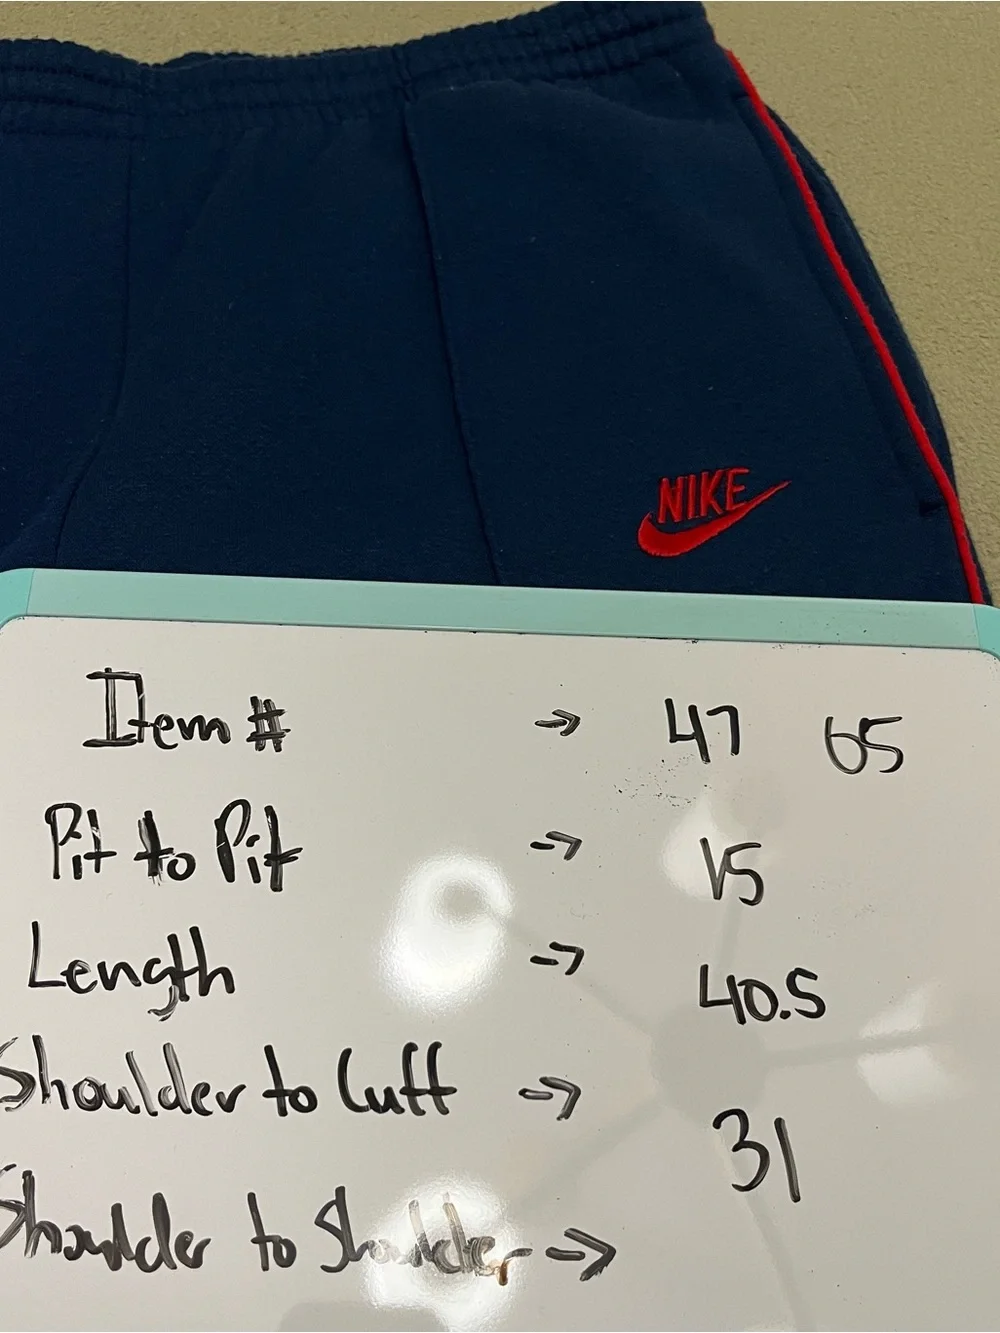 NIKE
Item # → 47 65
Pit to Pit → 15
Length → 40.5
Shoulder to Cuff → 31
Shoulder to Shoulder →